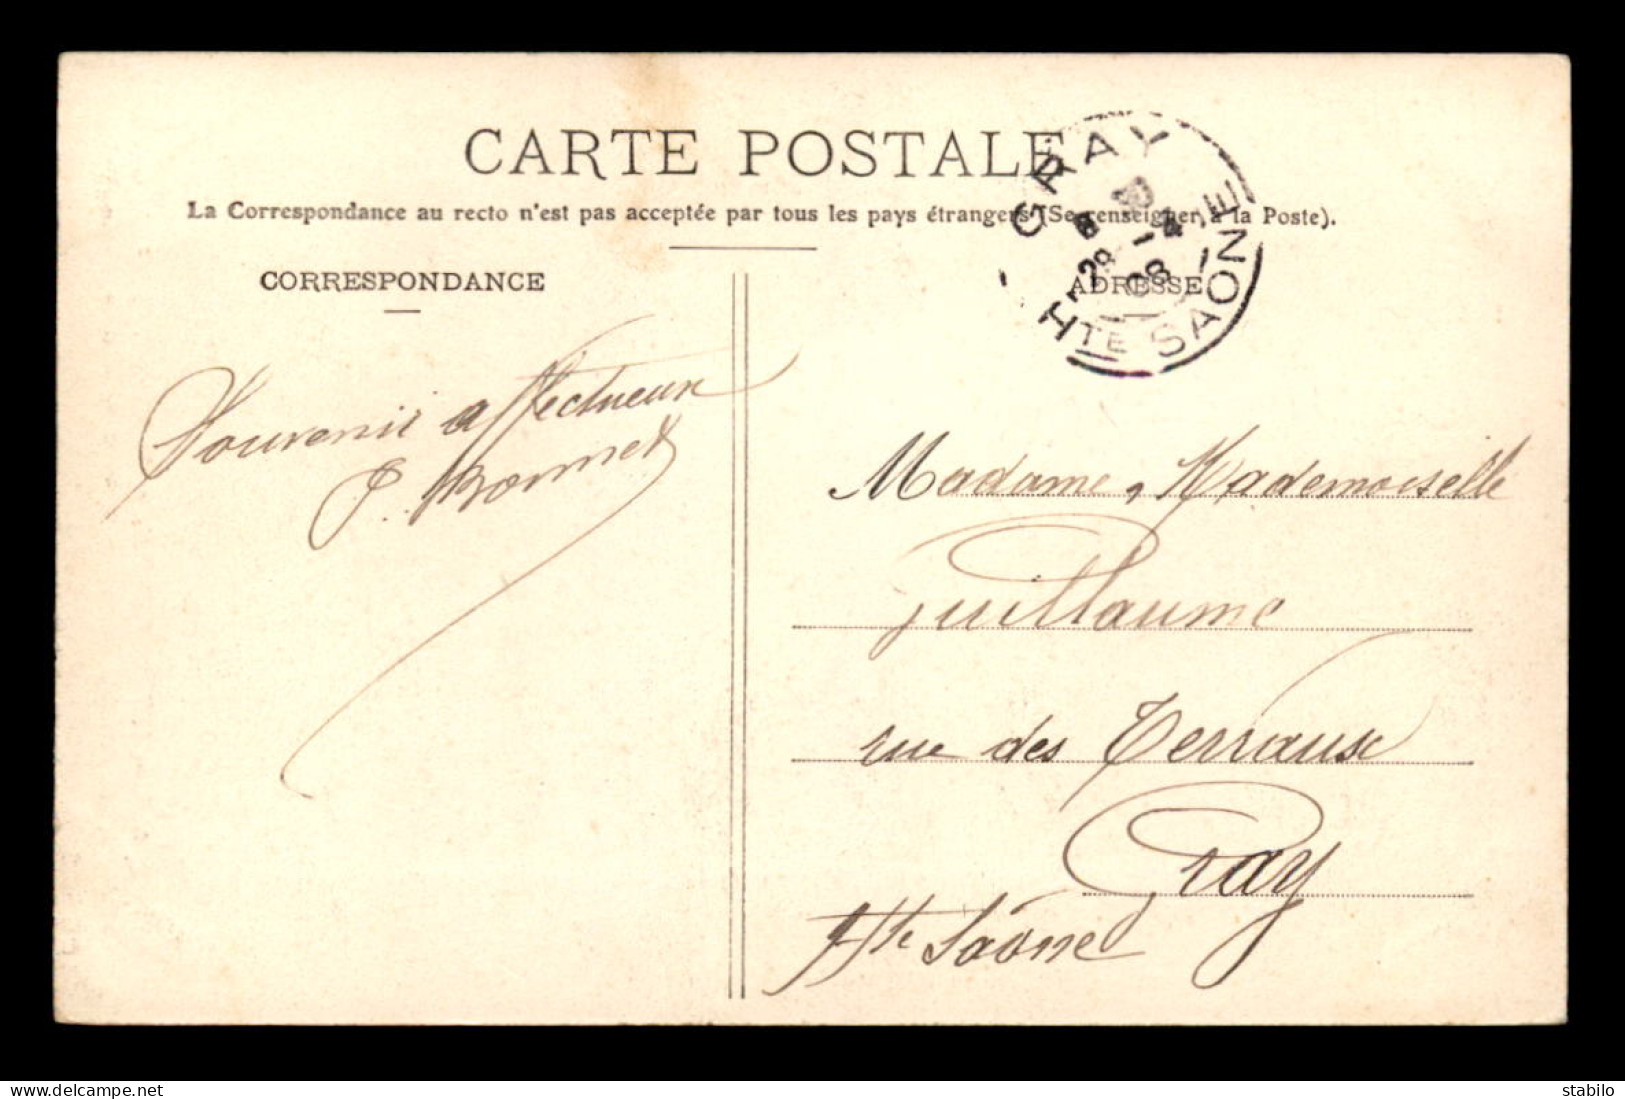 CARTE POSTALE
La Correspondance au recto n'est pas acceptée par tous les pays étrangers (Se renseigner à la Poste).
CORRESPONDANCE
ADRESSE
GRAY
29 - 4
08
HTE SAONE
Souvenir affectueux
P. Bonnet
Madame, Mademoiselle
Guillaume
rue des Terrasse
Gray
Hte Saône
www.delcampe.net
stabilo